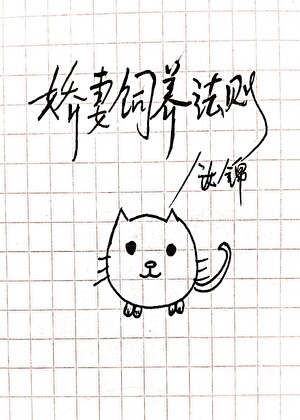 娇妻饲养法则
锦